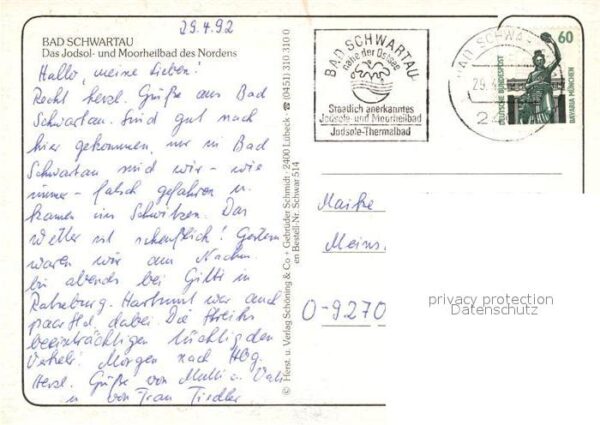 29.4.92
BAD SCHWARTAU
Das Jodsol- und Moorheilbad des Nordens
Hallo, meine Lieben!
Recht herzl. Grüße aus Bad
Schwartau. Sind gut nach
hier gekommen, nur in Bad
Schwartau sind wir - wie
immer - falsch gefahren u.
kamen ins Schwitzen. Das
Wetter ist scheußlich! Gestern
waren wir am Nachm.
bis abends bei Gitti in
Ratzeburg. Hartmut war auch
dabei. Die Streiks
beeinträchtigen tüchtig den
Verkehr. Morgen nach Hbg.
Herzl. Grüße von Mutti u. Vati
u von Frau Tiedler
© Herst. u. Verlag Schöning & Co + Gebrüder Schmidt · 2400 Lübeck · ☎ (0451) 310 310 0
en Bestell-Nr. Schwar 514
BAD SCHWARTAU
nahe der Ostsee
Staatlich anerkanntes
Jodsole- und Moorheilbad
Jodsole-Thermalbad
BAD SCHWA
29.4
2
60
DEUTSCHE BUNDESPOST
BAVARIA MÜNCHEN
Meins.
O-9270
privacy protection
Datenschutz